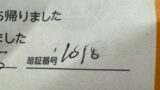 帰りました
ました
暗証番号 1618